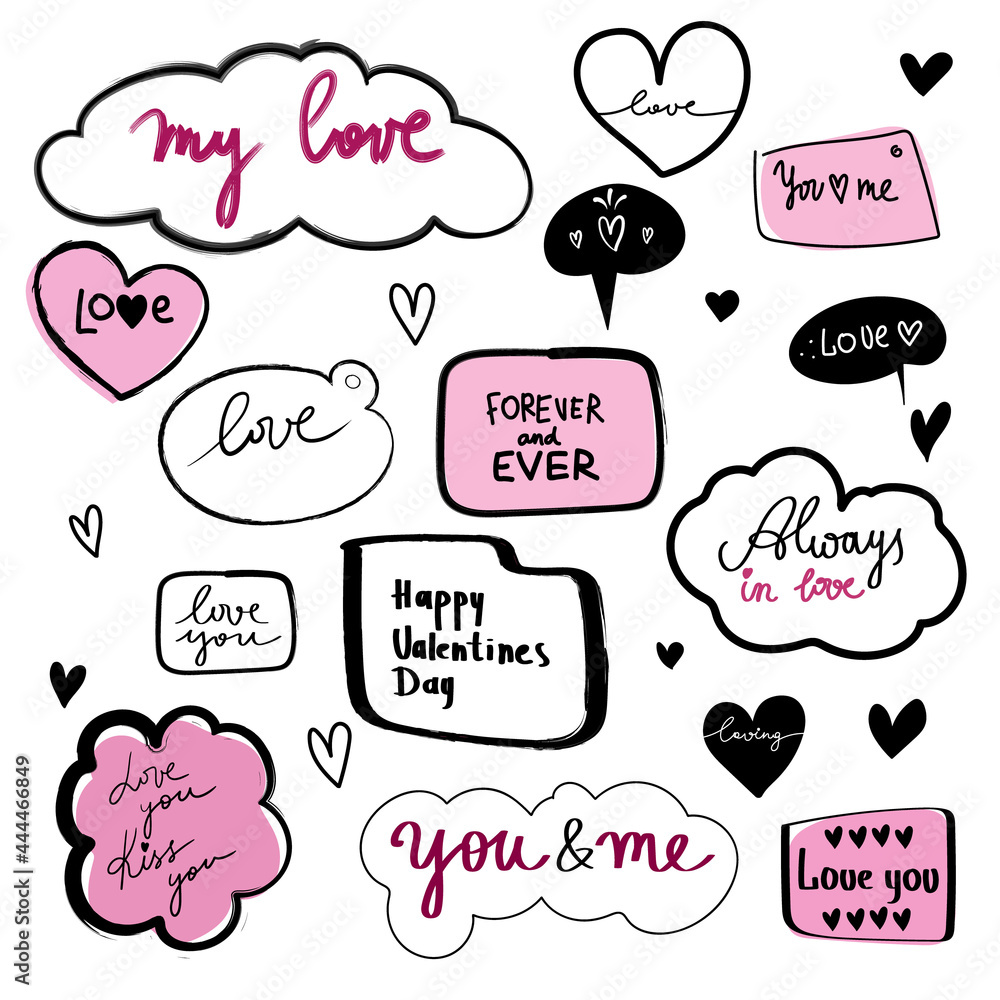 my love
love
You me
Love
.:LOVE
love
FOREVER
and
EVER
Always
in love
love
you
Happy
Valentines
Day
loving
Love
you
Kiss
you
you & me
Love you
Adobe Stock | #444466849